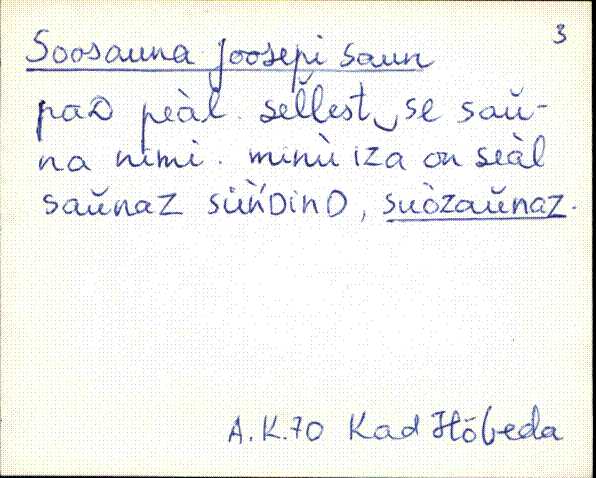 3
Soosauna Joosepi saun
paD peàl. sel̆lest‿se saŭ-
na nimi. minù iza on seàl
saŭnaz sǜǹDinD, suòzaŭnaz.
A.K.70 Kad Hõbeda